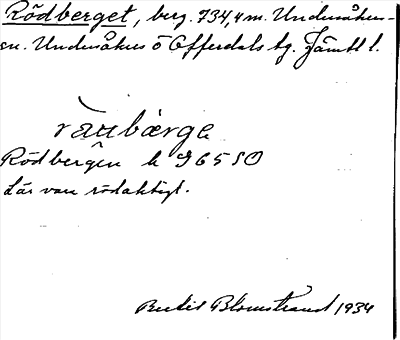 Rödberget, berg. 734,4 m. Undersåkers-
sn. Undersåkers o Offerdals tg. Jämtl l.
ràubàrge
Rödbergen k 96 5 SO
Lär vara rödaktigt.
Bertil Blomstrand 1934